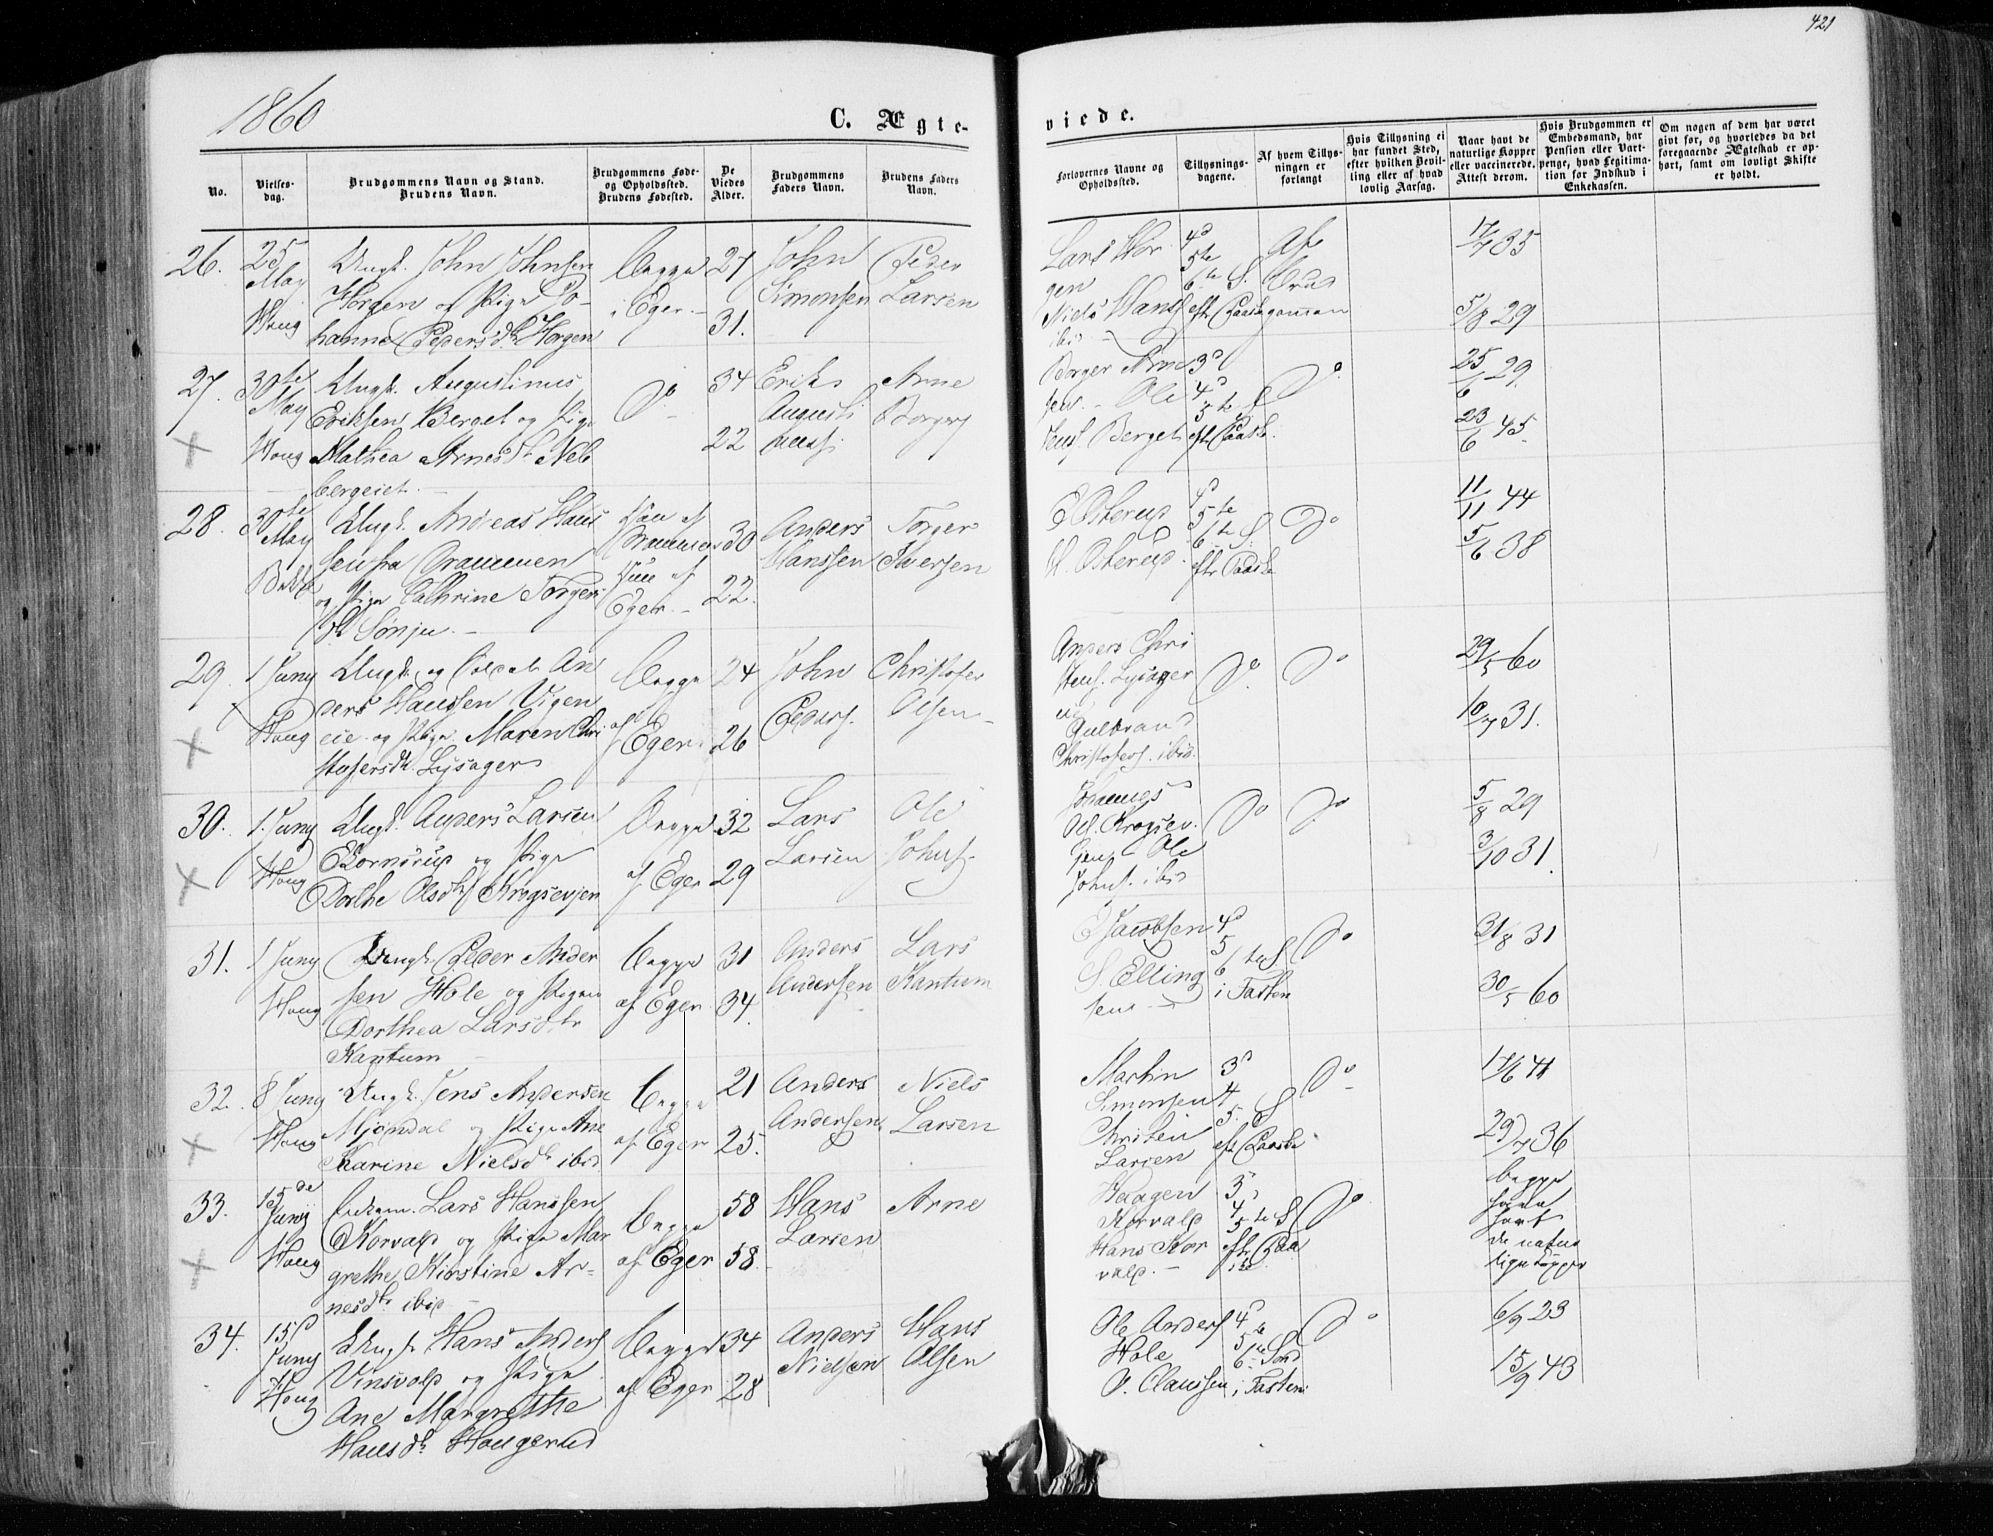 421
1860
C. Ægte-
viede.
No.
Vielses-
dag.
Brudgommens Navn og Stand.
Brudens Navn.
Brudgommens Føde-
og Opholdssted.
Brudens Fødested.
De
Viedes
Alder.
Brudgommens
Faders Navn.
Brudens Faders
Navn.
Forlovernes Navne og
Opholdssted.
Tillysnings-
dagene.
Af hvem Tillys-
ningen er
forlangt
Hvis Tillysning ei
har fundet Sted,
efter hvilken Bevil-
ling eller af hvad
lovlig Aarsag.
Naar havt de
naturlige Kopper
eller vaccinerede.
Attest derom.
Hvis Brudgommen er
Embedsmand, har
Pension eller Vart-
penge, hvad Legitima-
tion for Indskud i
Enkekassen.
Om nogen af dem har været
givt før, og hvorledes da det
foregaaende Ægteskab er op-
hørt, samt om lovligt Skifte
er holdt.
26.
25
May
Houg
Ungk. John Johnsen
Horgen og Pige Jo-
hanne Pedersdr Horgen
Begge
i Eger.
27
31.
John
Simonsen
Peder
Larsen
Lars Hor
gen
Niels Hansf
ibid
4d
5te
6te S.
eft. Paaske
Af
Brud
gommen
17/7 35
5/8 29
27.
30te
May
Houg
Ungk. Augustinus
Eriksen Berget og Pige
Mathea Arnesdr Neb
bergeiet
do
34
22
Erik
Augusti
nusf.
Arne
Borgersf
Borger Arne
sen. - Ole
Berget
3d
4d
5te S
eft Paaske.
do
25/6 29.
23/6 45.
28.
30te
May
Bakke
Ungk. Andreas Hans
sen fra Drammen
og Pige Cathrine Torgers
dr Sønju.
Han af
Drammen
Hun af
Eger.
30
22.
Anders
Hanssen
Torger
Iversen
E Osterud
H. Osterud.
4d
5te
6te S.
eftr Paaske
do
11/11 44
5/6 38
29.
1. Juny
Houg
Ungk. og Soldat An
ders Hanssen Vigen
eie og Pige Maren Chri
stofersdr Lysager
Begge
af Eger
24
26
John
Pedersf.
Christofer
Olsen
Anders Chri
stensf. Lysager
eie
Gulbrand
Christofersf. ibid.
do
do
29/5 60
10/7 31.
30.
1. Juny
Houg
Ungk. Anders Larsen
Bornsrup og Pige
Dorthe Olsdtr Krogsevjen
Begge
af Eger
32
29
Lars
Larsen
Ole
Johnsf.
Johannes
Ol. Krogsev.
jen - Ole
Johnf. ibid
do
do
5/8 29
3/10 31.
31.
1 Juny
Houg
Ungk. Peder Ander
sen Hole og Pigen
Dorthea Larsdtr
Kantum
Begge
af Eger
31
34.
Anders
Andersen
Lars
Kantum
E Jacobsen
S. Elling
sen
4d
5
6te S.
i Fasten
do
31/8 31
30/5 60
32.
8 Juny
Houg
Ungk. Jens Andersen
Mjøndal og Pige Ane
Karine Nielsdr ibid
Begge
af Eger
21
25.
Anders
Andersen
Niels
Larsen
Martin
Simonsen
Christen
Larsen
3d
4
5. S
eft Paaske
do
17/6 41
29/7 36
33.
15de
Junij
Houg
Enkem. Lars Hanssen
Korvald og Pige Mar
grethe Kirstine Ar-
nesdtr ibid
Begge
af Eger
58
58.
Hans
Larsen
Arne
Haagen
Korvald
Hans Kor
vald.
3d
4
5te S
eftr Paa
ske
do
begge
have
havt
de natur
lige Kopper
34.
15d
Juny
Houg
Ungk. Hans Andersf
Vinsvold og Pige
Ane Margrethe
Hansdr Haugerud
Begge
af Eger
34
28
Anders
Nielsen
Hans
Olsen
Ole Andersf
Hole
O. Claussen
4d
5te
6te Sønd
i Fasten
do
6/9 23
15/9 43